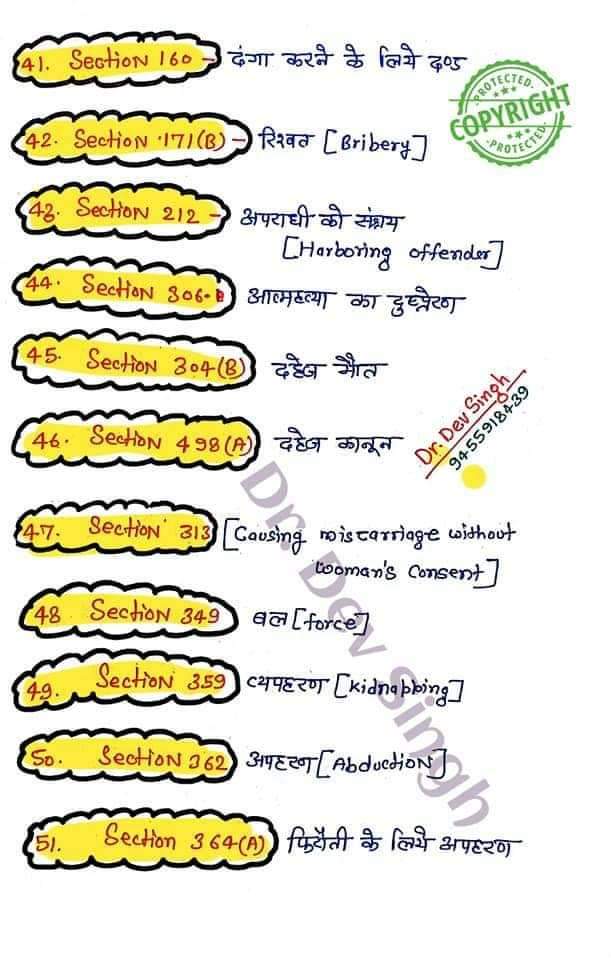 41. Section 160 - दंगा करने के लिये दण्ड
PROTECTED
COPYRIGHT
PROTECTED
42. Section 171(B) - रिश्वत [Bribery]
43. Section 212 - अपराधी को संश्रय
[Harboring offender]
44. Section 306 आत्महत्या का दुष्प्रेरण
45. Section 304(B) दहेज मौत
46. Section 498(A) दहेज कानून
Dr. Dev Singh
9455918439
47. Section 313 [Causing miscarriage without
Woman's Consent]
48. Section 349 बल [force]
49. Section 359 व्यपहरण [kidnapping]
50. Section 362 अपहरण [Abduction]
51. Section 364(A) फिरौती के लिये अपहरण
Dr. Dev Singh